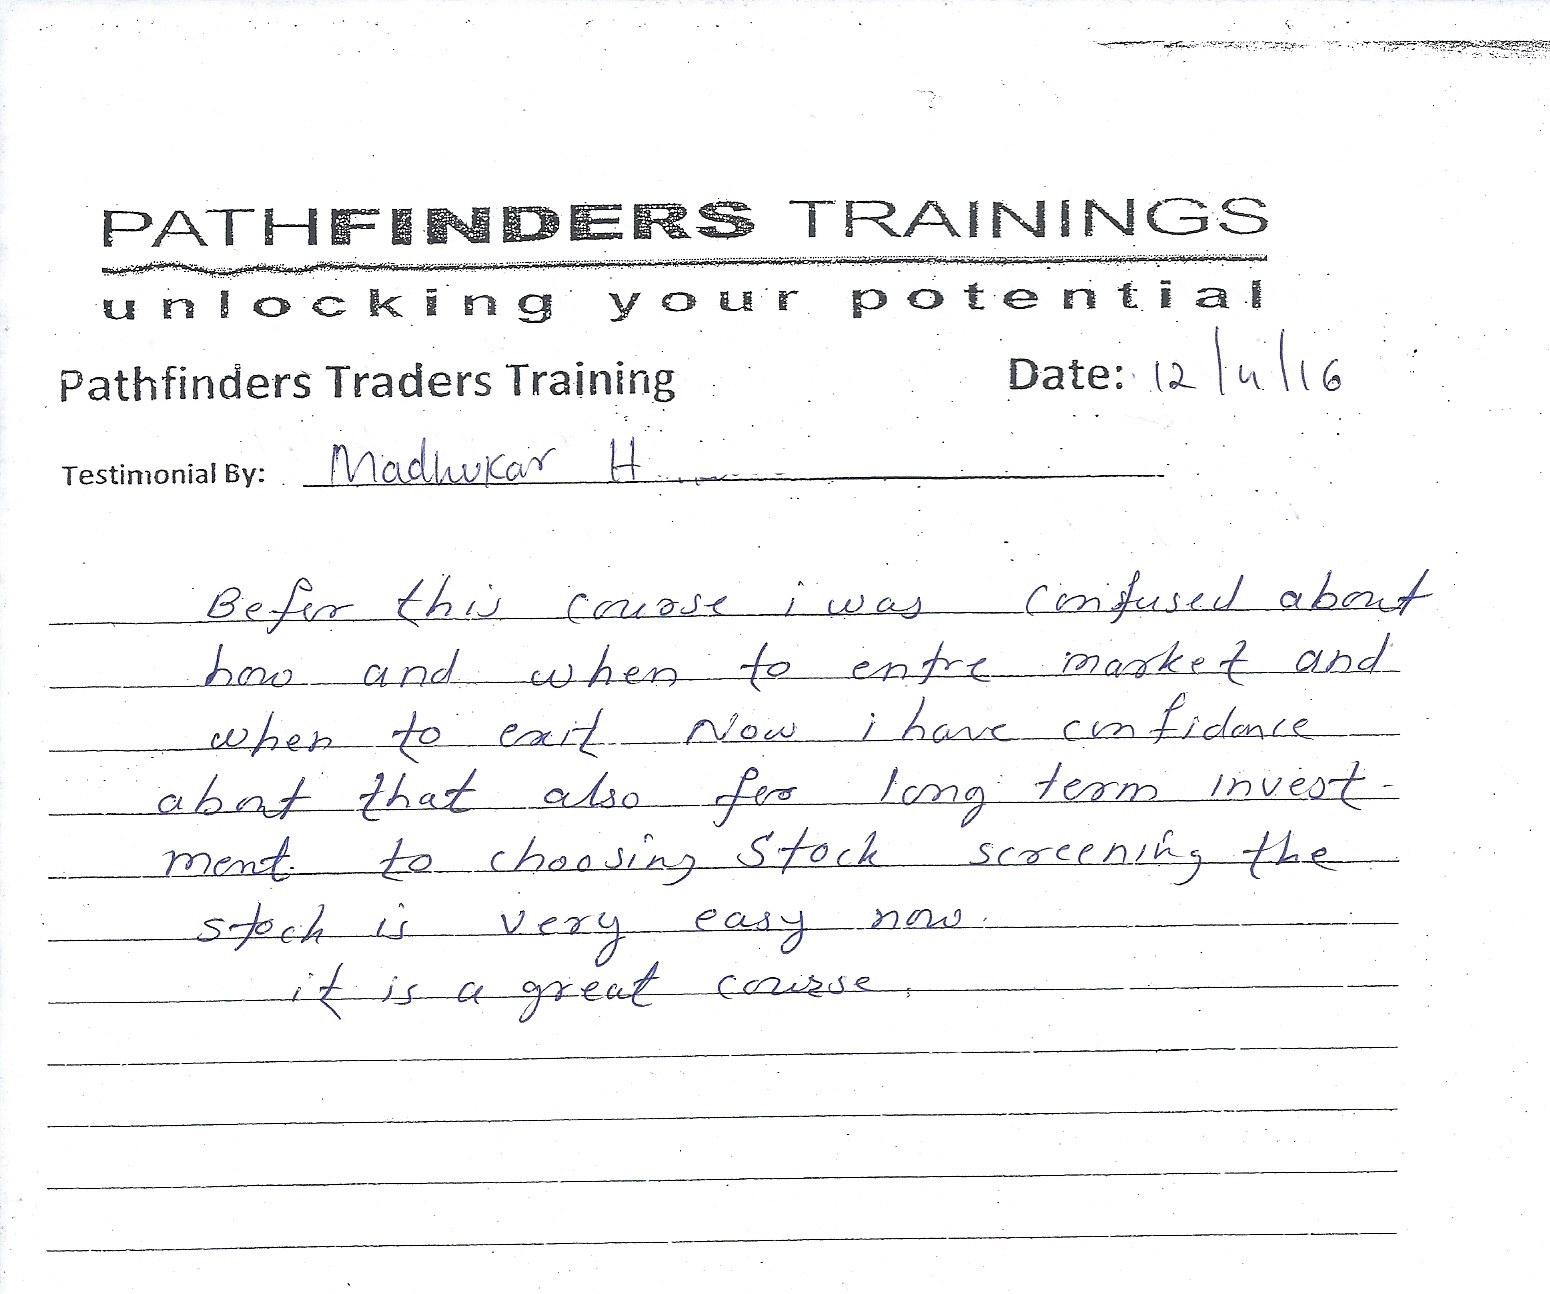 PATHFINDERS TRAININGS
unlocking your potential
Pathfinders Traders Training Date: 12/4/16
Testimonial By: Madhukar H
Befor this course i was confused about
how and when to entre market and
when to exit Now i have confidance
about that also for long term invest-
ment to choosing Stock screening the
stock is very easy now.
it is a great course.